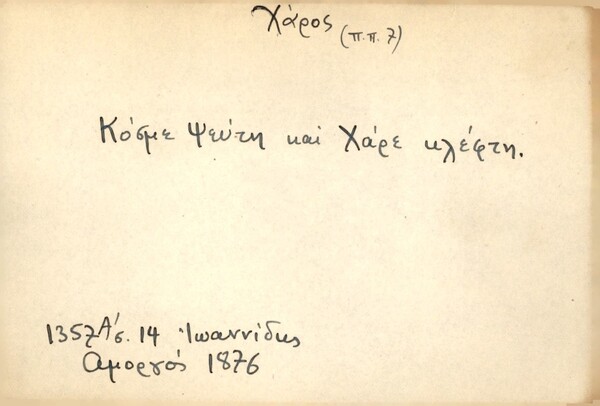 Χάρος (π.π. 7)
Κόσμε ψεύτη καί Χάρε κλέφτη.
1357 Α΄ σ. 14 Ἰωαννίδης
Αμοργός 1876